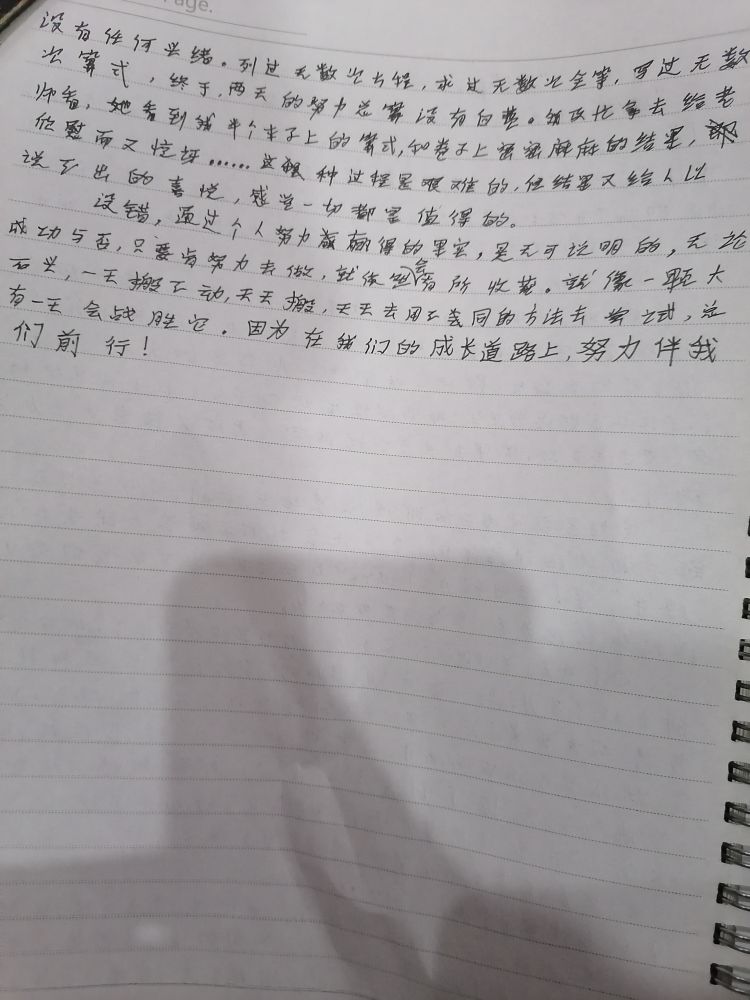 age.
没有任何头绪。列过无数次方程，求过无数次全等，写过无数
次算式，终于，两天的努力总算没有白费。领改比拿去给老
师看，她看到我半个本子上的算式，和卷子上密密麻麻的结果，
欣慰而又惊讶……这种过程是艰难的，但结果又给人以
说不出的喜悦，感觉一切都是值得的。
没错，通过个人努力赢得的果实，是无可说明的，无论
成功与否，只要肯努力去做，就会有所收获。就像一颗大
石头，一天搬不动，天天搬，天天去用不同的方法去尝试，总
有一天会战胜它。因为在我们的成长道路上，努力伴我
们前行！